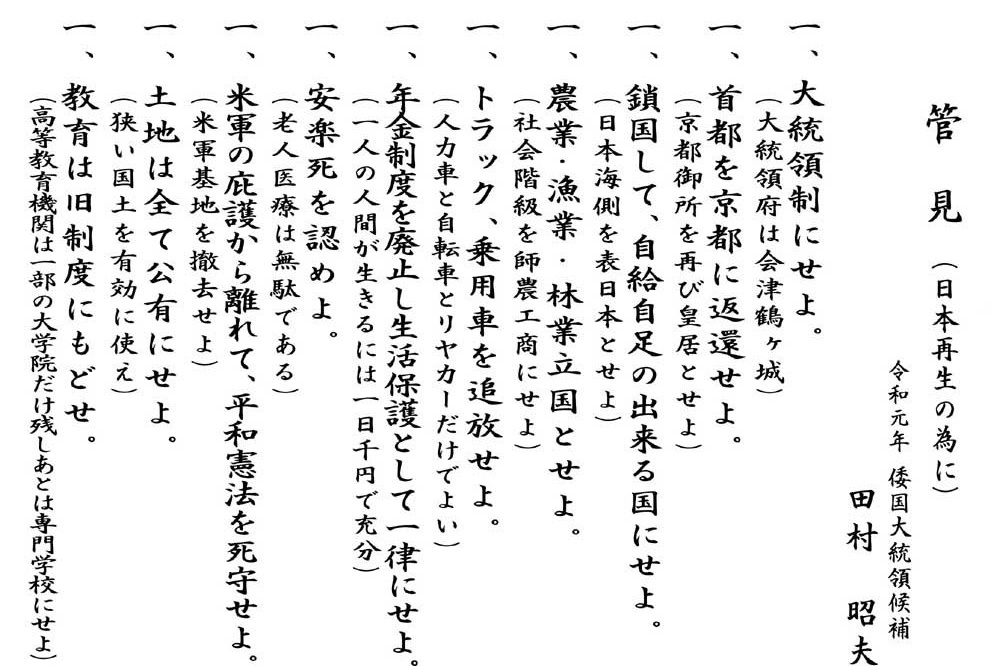 管見（日本再生の為に）
令和元年 倭国大統領候補
田村 昭夫
一、大統領制にせよ。
（大統領府は会津鶴ヶ城）
一、首都を京都に返還せよ。
（京都御所を再び皇居とせよ）
一、鎖国して、自給自足の出来る国にせよ。
（日本海側を表日本とせよ）
一、農業・漁業・林業立国とせよ。
（社会階級を師農工商にせよ）
一、トラック、乗用車を追放せよ。
（人力車と自転車とリヤカーだけでよい）
一、年金制度を廃止し生活保護として一律にせよ。
（一人の人間が生きるには一日千円で充分）
一、安楽死を認めよ。
（老人医療は無駄である）
一、米軍の庇護から離れて、平和憲法を死守せよ。
（米軍基地を撤去せよ）
一、土地は全て公有にせよ。
（狭い国土を有効に使え）
一、教育は旧制度にもどせ。
（高等教育機関は一部の大学院だけ残しあとは専門学校にせよ）